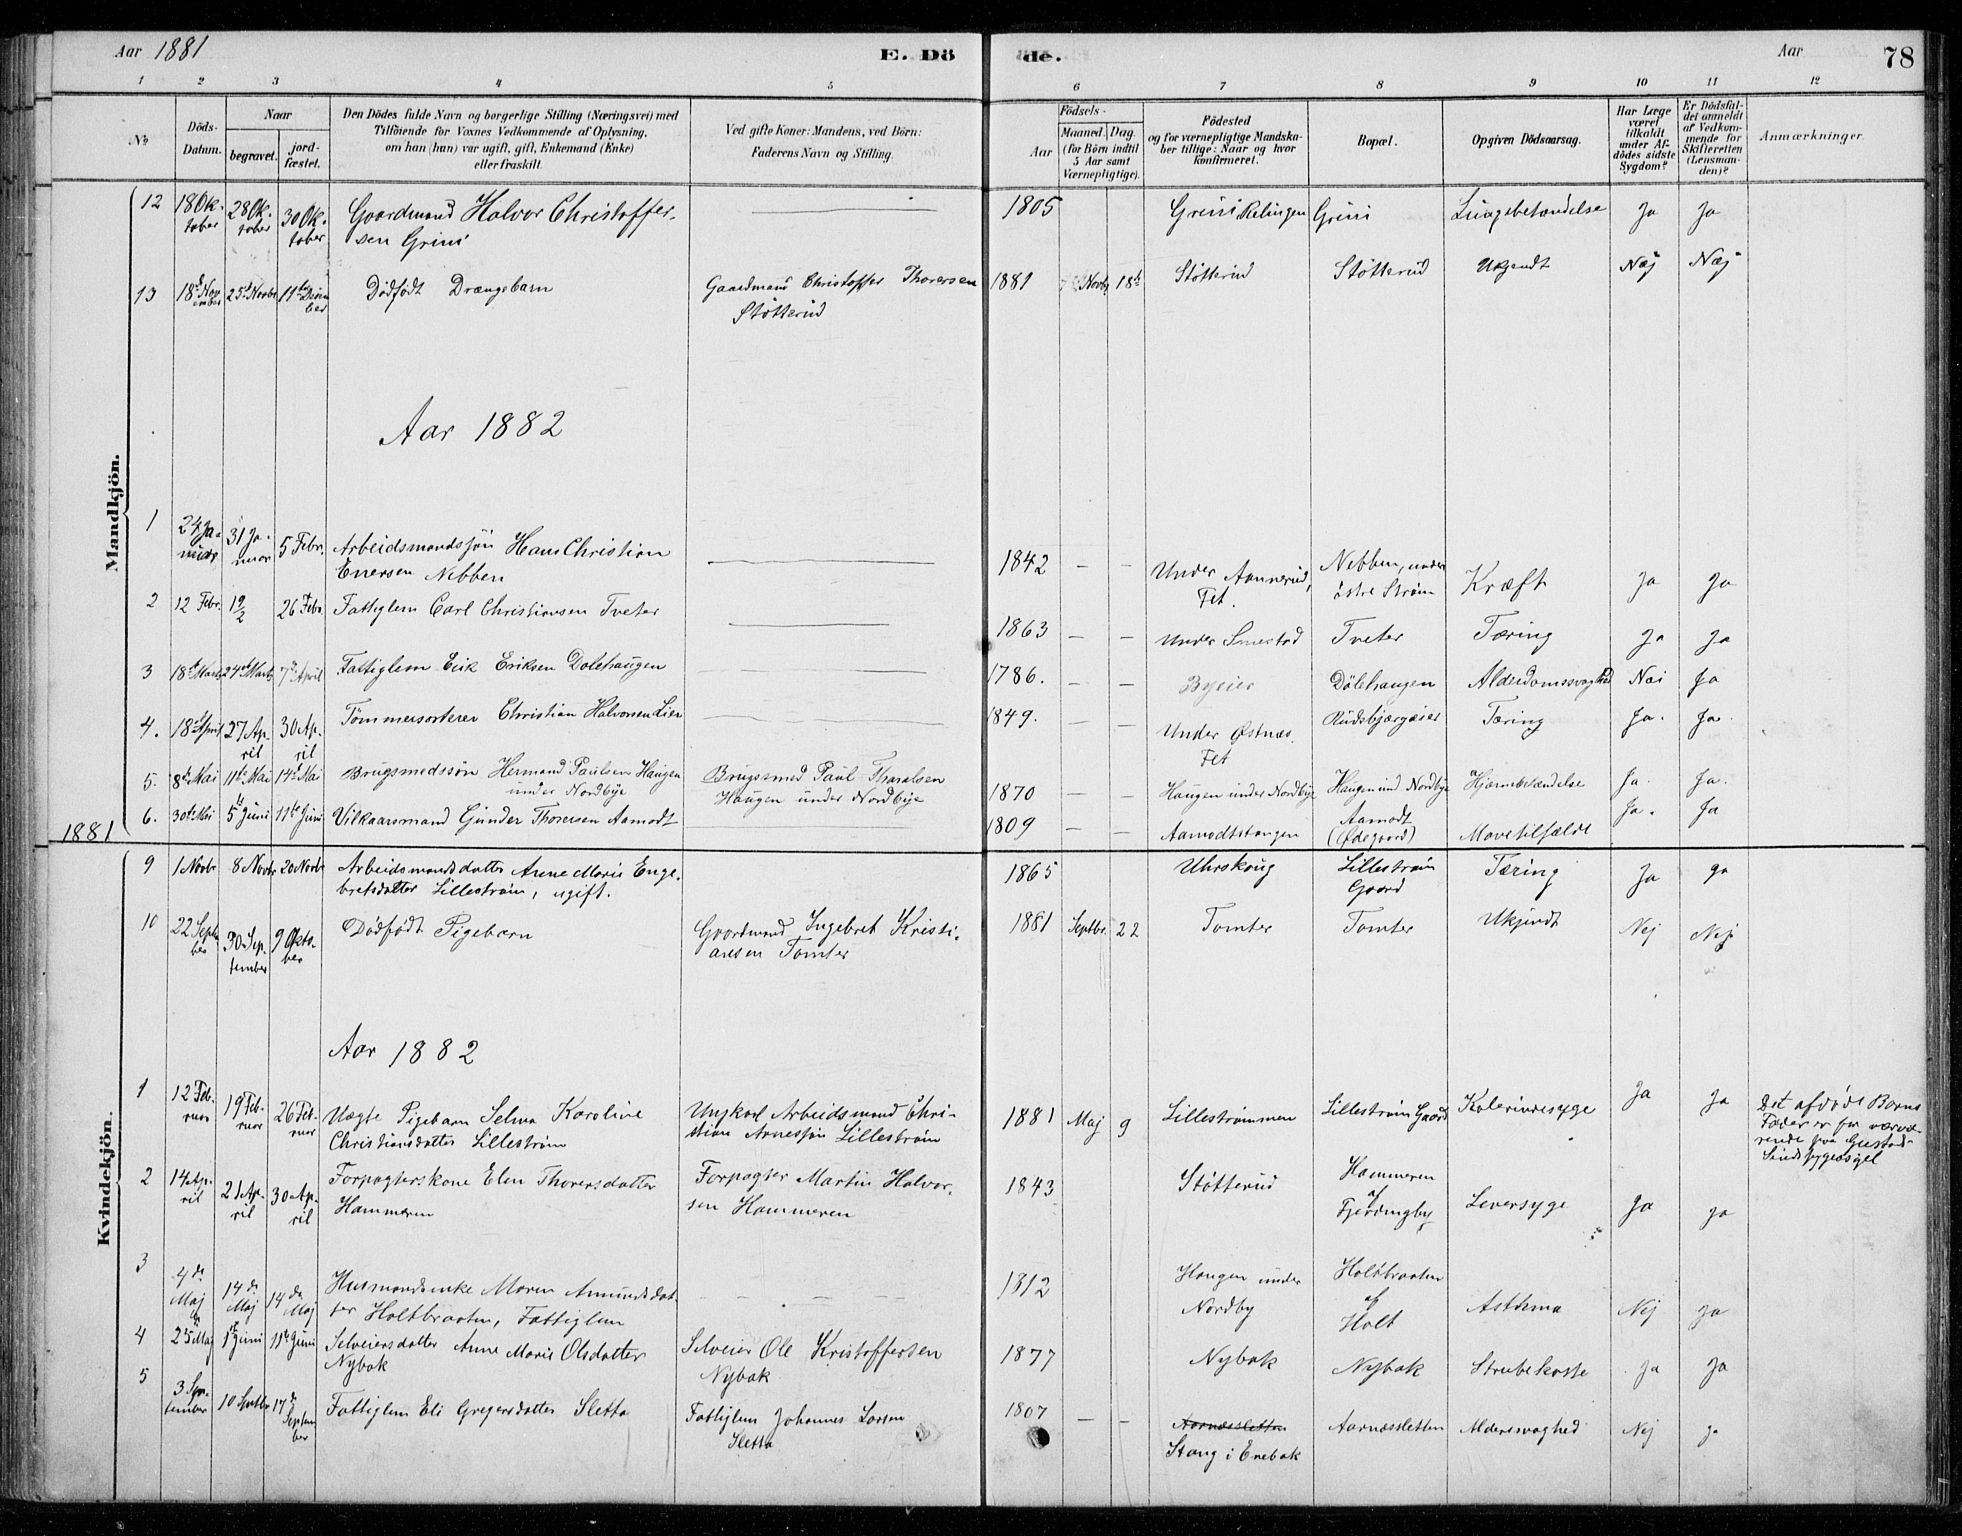 Aar 1881
E. Dö
de.
Aar
78
1 2 3 4 5 6 7 8 9 10 11 12
No
Döds-Datum.
Naar
begravet.
jord-fæstet.
Den Dödes fulde Navn og borgerlige Stilling (Næringsvei) med
Tilföiende for Voxnes Vedkommende af Oplysning,
om han (hun) var ugift, gift, Enkemand (Enke)
eller fraskilt.
Ved gifte Koner: Mandens, ved Börn:
Faderens Navn og Stilling.
Födsels-
Aar
Maaned. Dag.
(for Börn indtil
5 Aar samt
Værnepligtige).
Födested
og for værnepligtige Mandska-
ber tillige: Naar og hvor
konfirmeret.
Bopæl.
Opgiven Dödsaarsag.
Har Læge
været
tilkaldt
under Af-
dödes sidste
Sygdom?
Er Dödsfal-
det anmeldt
af Vedkom-
mende for
Skifteretten
(Lensman-
den)?
Anmærkninger.
Mandkjön.
12 18 Ok-tober 28 Ok-tober 30 Ok-tober Gaardmand Halvor Christoffer-
sen Grini
1805 Grini Relingen Grini Lungebetændelse Ja Ja
13 18d November 25d Novbr 11te December Dödfödt Drængebarn Gaardmand Christoffer Thorersen
Stötterud
1881 Novbr 18de Stötterud Stötterud Ukjendt Nej Nej
Aar 1882
1 24 Ja-nuar 31 Ja-nuar 5 Febr. Arbeidsmandssön Hans Christian
Enersen Nebben
1842 – – Under Aannerud, Fet. Nebben, under östre Ström Kræft Ja Ja
2 12 Febr. 19/2 26 Febr. Fattiglem Carl Christiansen Tveter
1863 – – Under Smestad Tveter Tæring Ja Ja
3 18d Marts 24de Marts 7de April Fattiglem Erik Eriksen Dölehaugen
1786. – – Byeier Dölehaugen Alderdomssvaghed Nei Ja
4. 18d April 27 Ap-ril 30 Ap-ril Tömmersorterer Christian Halvorsen Lier
1849. – – Under Østnæs. Fet Rudsbjærgeier Tæring Ja. Ja.
5. 8de Mai 11te Mai 14d Mai Brugsmedssön Hermand Paulsen Haugen
under Nordbye
Brugsmed Paul Tharalsen
Haugen under Nordbye
1870 – – Haugen under Nordbye Haugen und Nordbye Hjærnebetændelse Ja. Ja.
6. 30te Mai 5te Juni 11te Juni Vilkaarsmand Gunder Thorersen Aamodt
1809 – – Aamodtstangen Aamodt (Ødegaard) Mavetilfælde Ja. Ja
1881
Kvindekjön.
9 1 Novbr 8 Novbr 20 Novbr Arbeidsmandsdatter Anne Marie Enge-
bretsdatter Lilleström, ugift.
1865 Uhrskoug Lilleström Gaard Tæring Ja Ja
10 22 Septe-ber 30 Sep-tember 9 Okto-ber Dödfödt Pigebarn Gaardmand Ingebret Kristi-
ansen Tomter
1881 Septbr. 22 Tomter Tomter Ukjendt Nej Nej
Aar 1882
1 12 Feb-ruar 19 Feb-ruar 26 Feb-ruar Uægte Pigebarn Selma Karoline
Christiansdatter Lilleström
Ungkarl Arbeidsmand Chri-
stian Arnessön Lilleström
1881 Maj 9 Lilleströmmen Lilleström Gaard Kolerinesyge Ja Ja
Det afdöde Barns
Fader er for nærvæ-
rende paa Gustad
Sindssygeasyl
2 14 Ap-ril 21 Ap-ril 30 Ap-ril Forpagterskone Elen Thorersdatter
Hammeren
Forpagter Martin Halvor-
sen Hammeren
1843 Stötterud Hammeren af Fjerdingby Leversyge Ja Ja
3 4de Maj 14de Maj 14de Maj Husmandsenke Maren Amundsdat-
ter Holtbraaten, Fattiglem
– – – –
1812 Haugen under Nordby Holtbraaten af Holt Asthma Nej Ja
4 25 Maj 1ste Juni 11te Juni Selveiersdatter Anne Marie Olsdatter
Nybak
Selveier Ole Kristoffersen
Nybak
1877 Nybak Nybak Strubehoste Ja Ja
5 3 Sep-tember 10 Septbr 17de September Fattiglem Eli Gregersdatter Sletta
Fattiglem Johannes Larsen
Sletta
1807 – – Aarnæssletta
Stang i Enebak Aarnæssletten Aldersvaghed Nej Ja